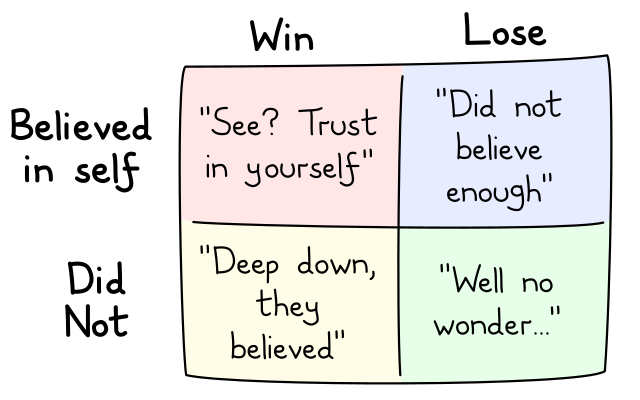 Win
Lose
Believed
in self
"See? Trust
in yourself"
"Did not
believe
enough"
Did
Not
"Deep down,
they
believed"
"Well no
wonder..."